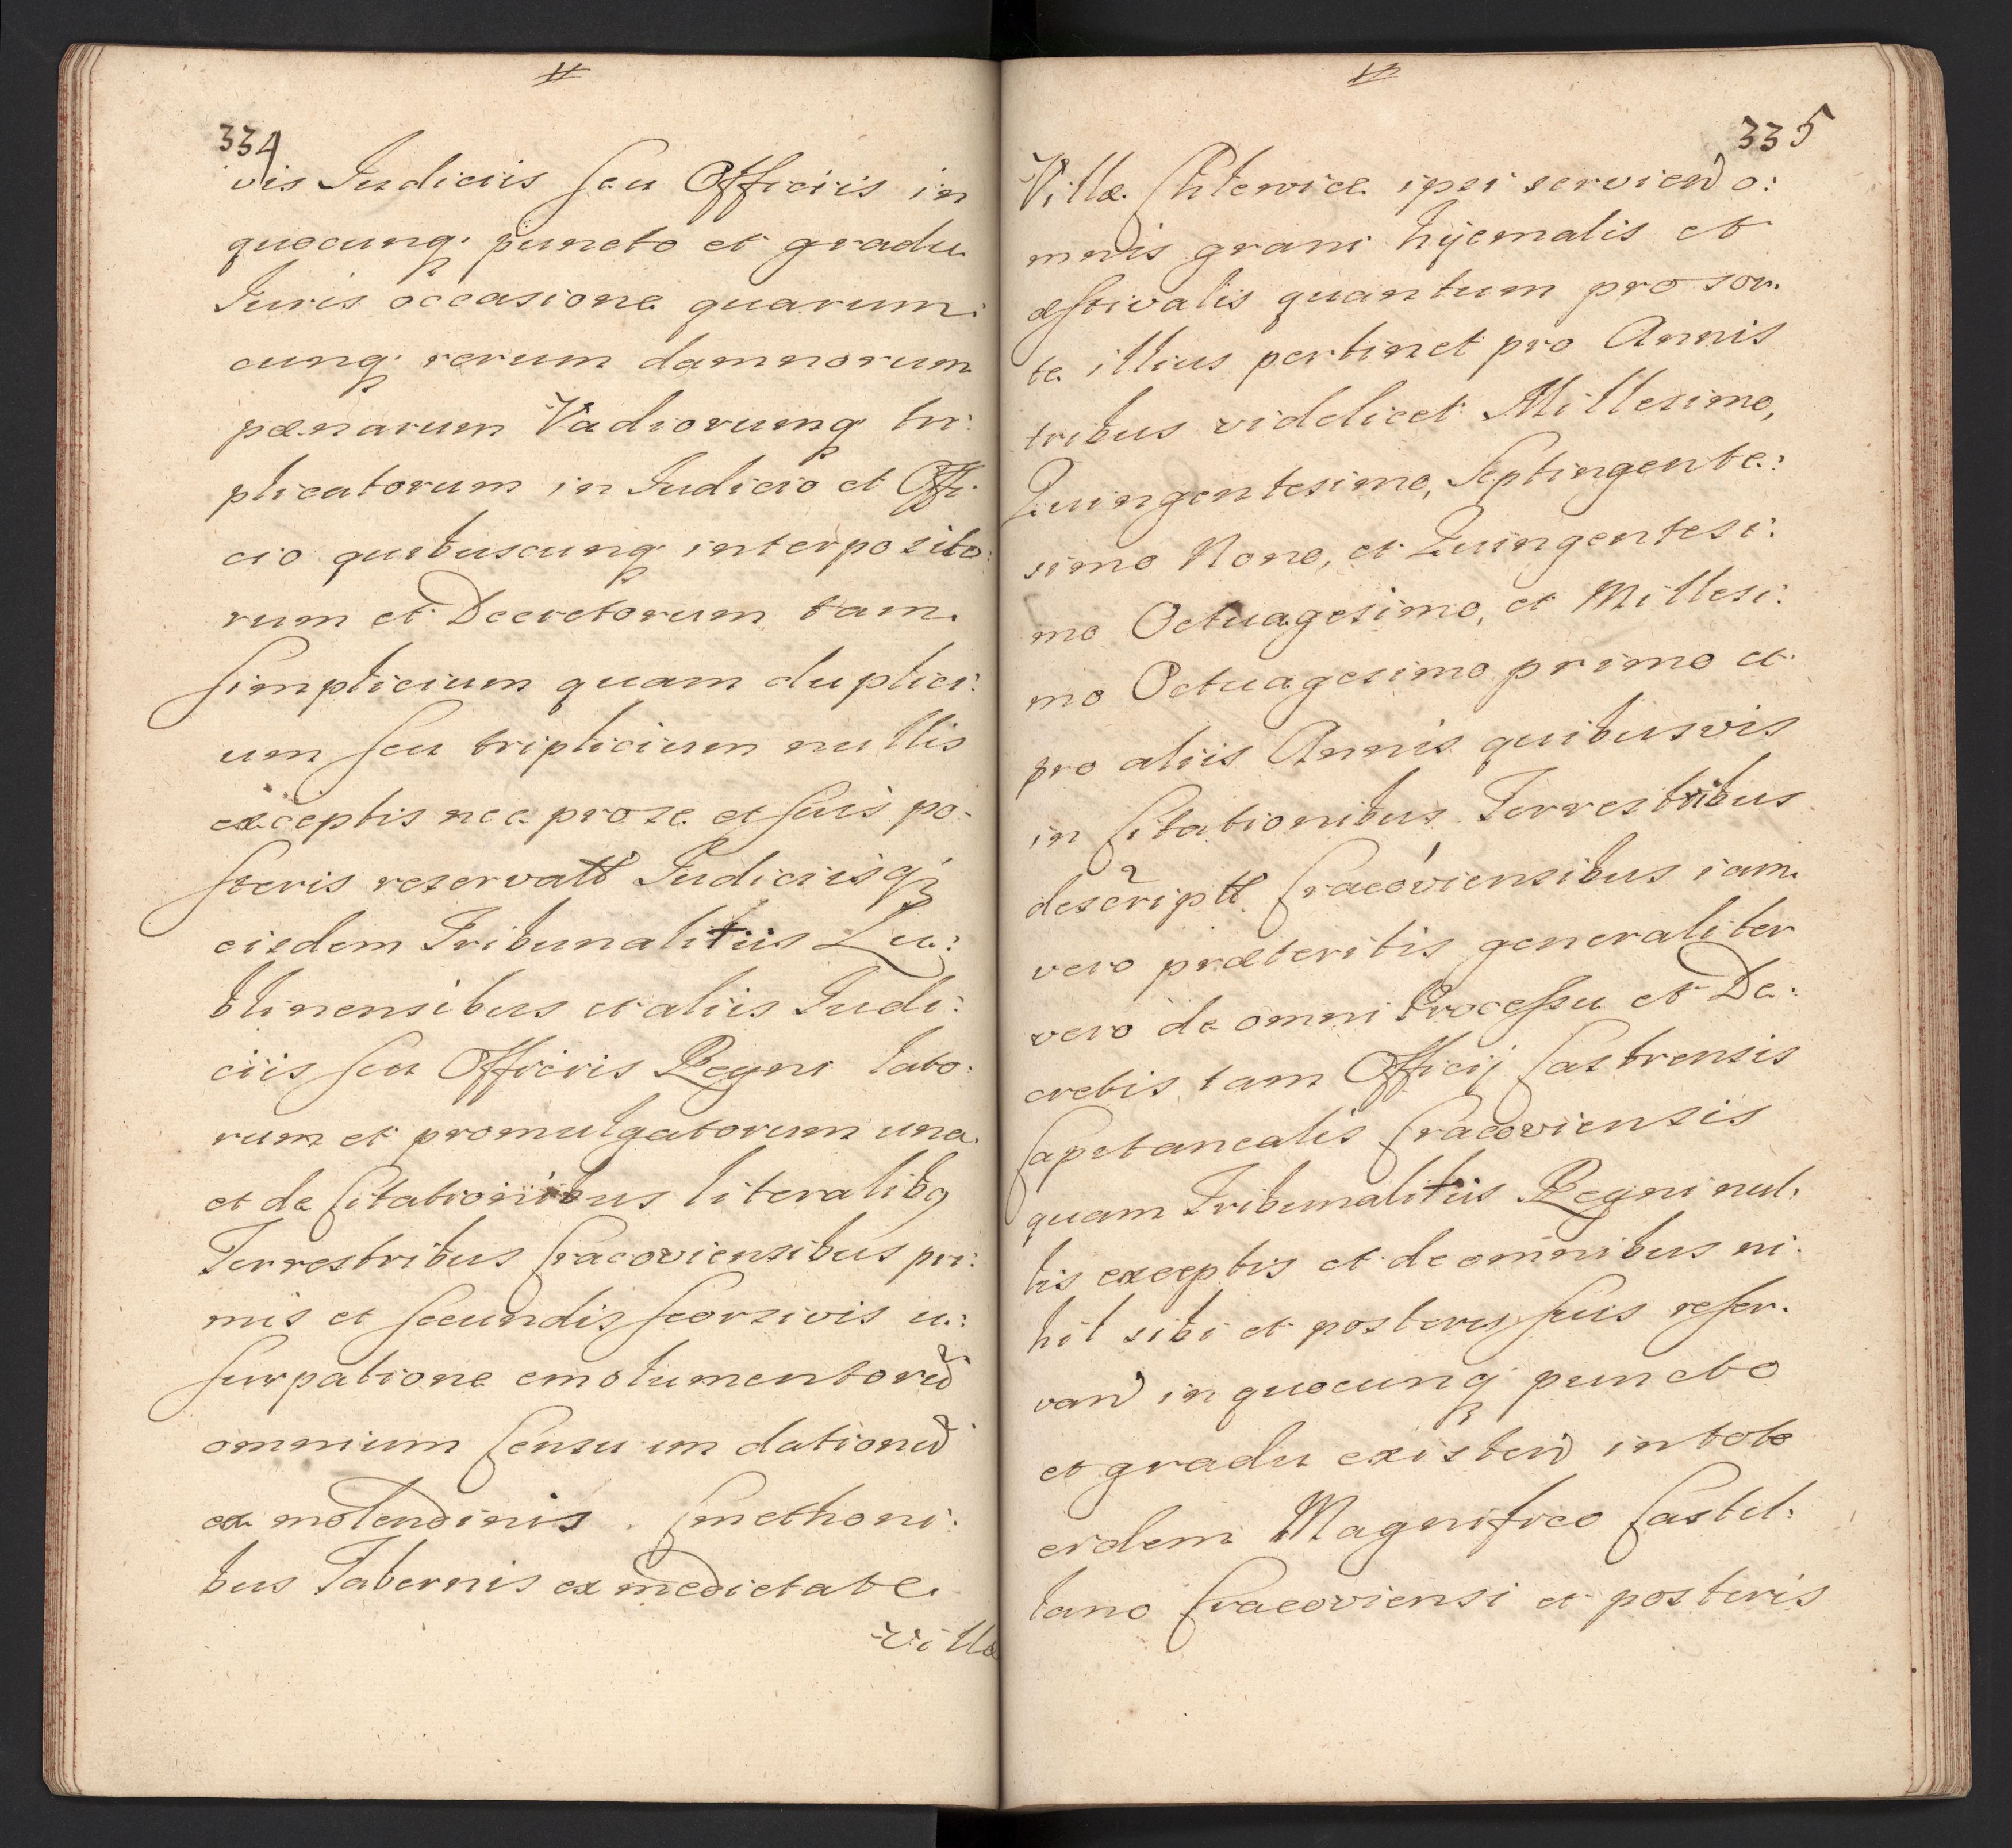 334
vis Judiciis seu Officiis in
quocunq; puncto et gradu
Juris occasione quarum:
cunq; rerum damnorum
pænarum Vadiorumq; tri:
plicatorum in Judicio et Offi:
cio quibuscunq; interposito:
rum et Decretorum tam
simplicium quam duplici:
um seu triplicium nullis
exceptis nec pro se et suis po:
steris reservatt Judiciisq;
eisdem Tribunalitiis Lu:
blinensibus et aliis Judi:
ciis seu Officiis Regni lato:
rum et promulgatorum una
et de Citationibus literalibq
Terrestribus Cracoviensibus pri:
mis et secundis seorsivis u:
surpatione emolumentorū
omnium Censuum dationū
ex molendinis Cmethoni:
bus Tabernis ex medietate
Villæ
335
Villæ Chlewice ipsi serviend o:
mnis grani hÿemalis et
æstivalis quantum pro sor:
te illius pertinet pro Annis
tribus videlicet Millesimo,
Quingentesimo, Septingente:
simo Nono, et Quingentesi:
mo Octuagesimo, et Millesi:
mo Octuagesimo primo et
pro aliis Annis quibusvis
in Citationibus Terrestribus
descriptt Cracoviensibus iam
vero præteritis generaliter
vero de omni Processu et De:
cretis tam Officij Castrensis
Capitanealis Cracoviensis
quam Tribunalitiis Regni nul:
lis exceptis et de omnibus ni:
hil sibi et posteris suis reser:
vand in quocunq; puncto
et gradu existen in toto
eidem Magnifico Castel:
lano Cracoviensi et posteris